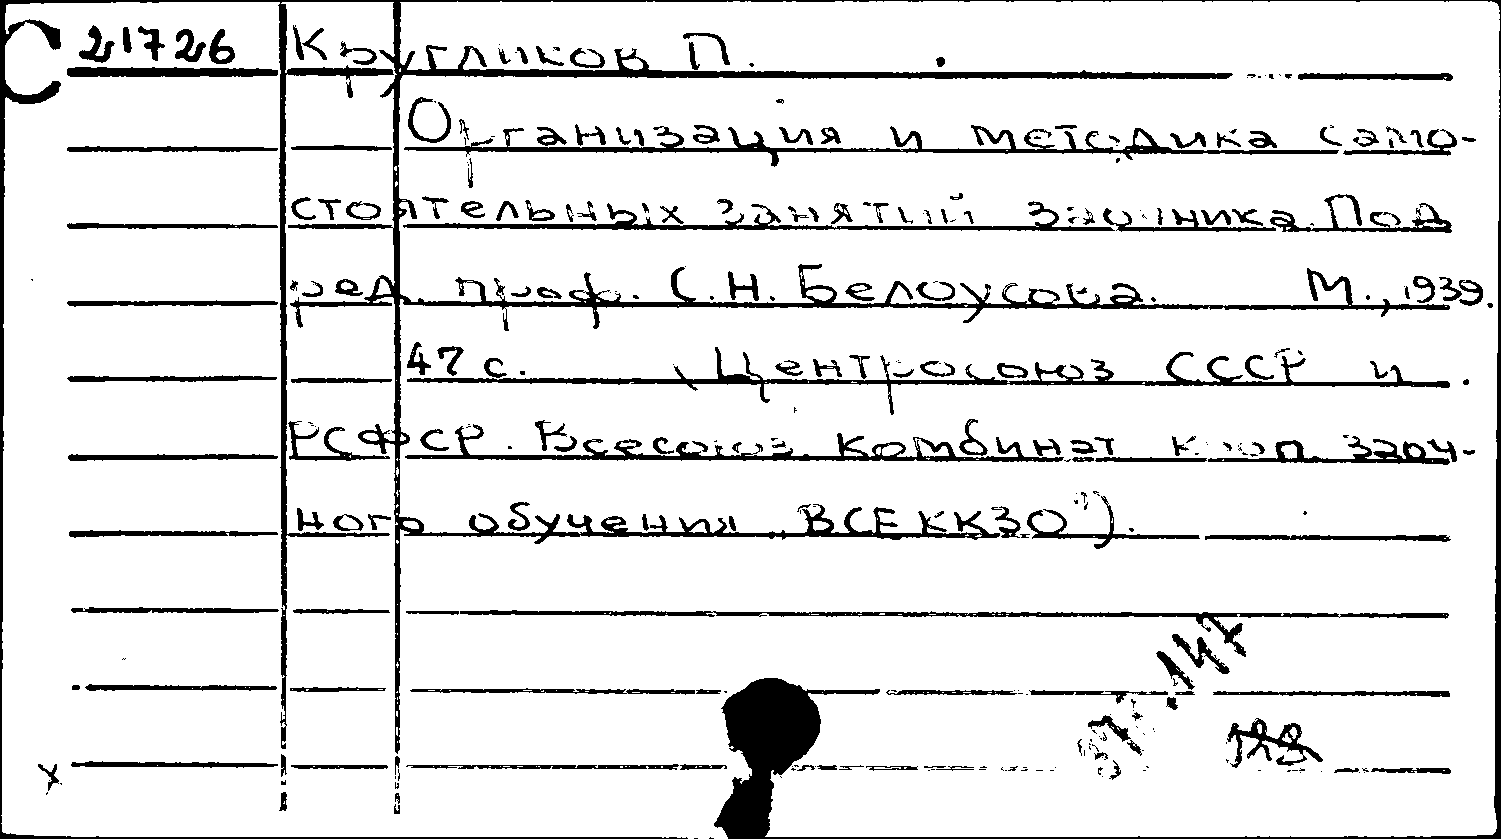 21726 Кругликов П.
Организация и методика само-
стоятельных занятий заочника. Под
ред. проф. С.Н. Белоусова. М., 1939.
47 с. (Центросоюз СССР и
РСФСР. Всесоюз. комбинат кооп. заоч-
ного обучения „ВСЕККЗО").
37.147